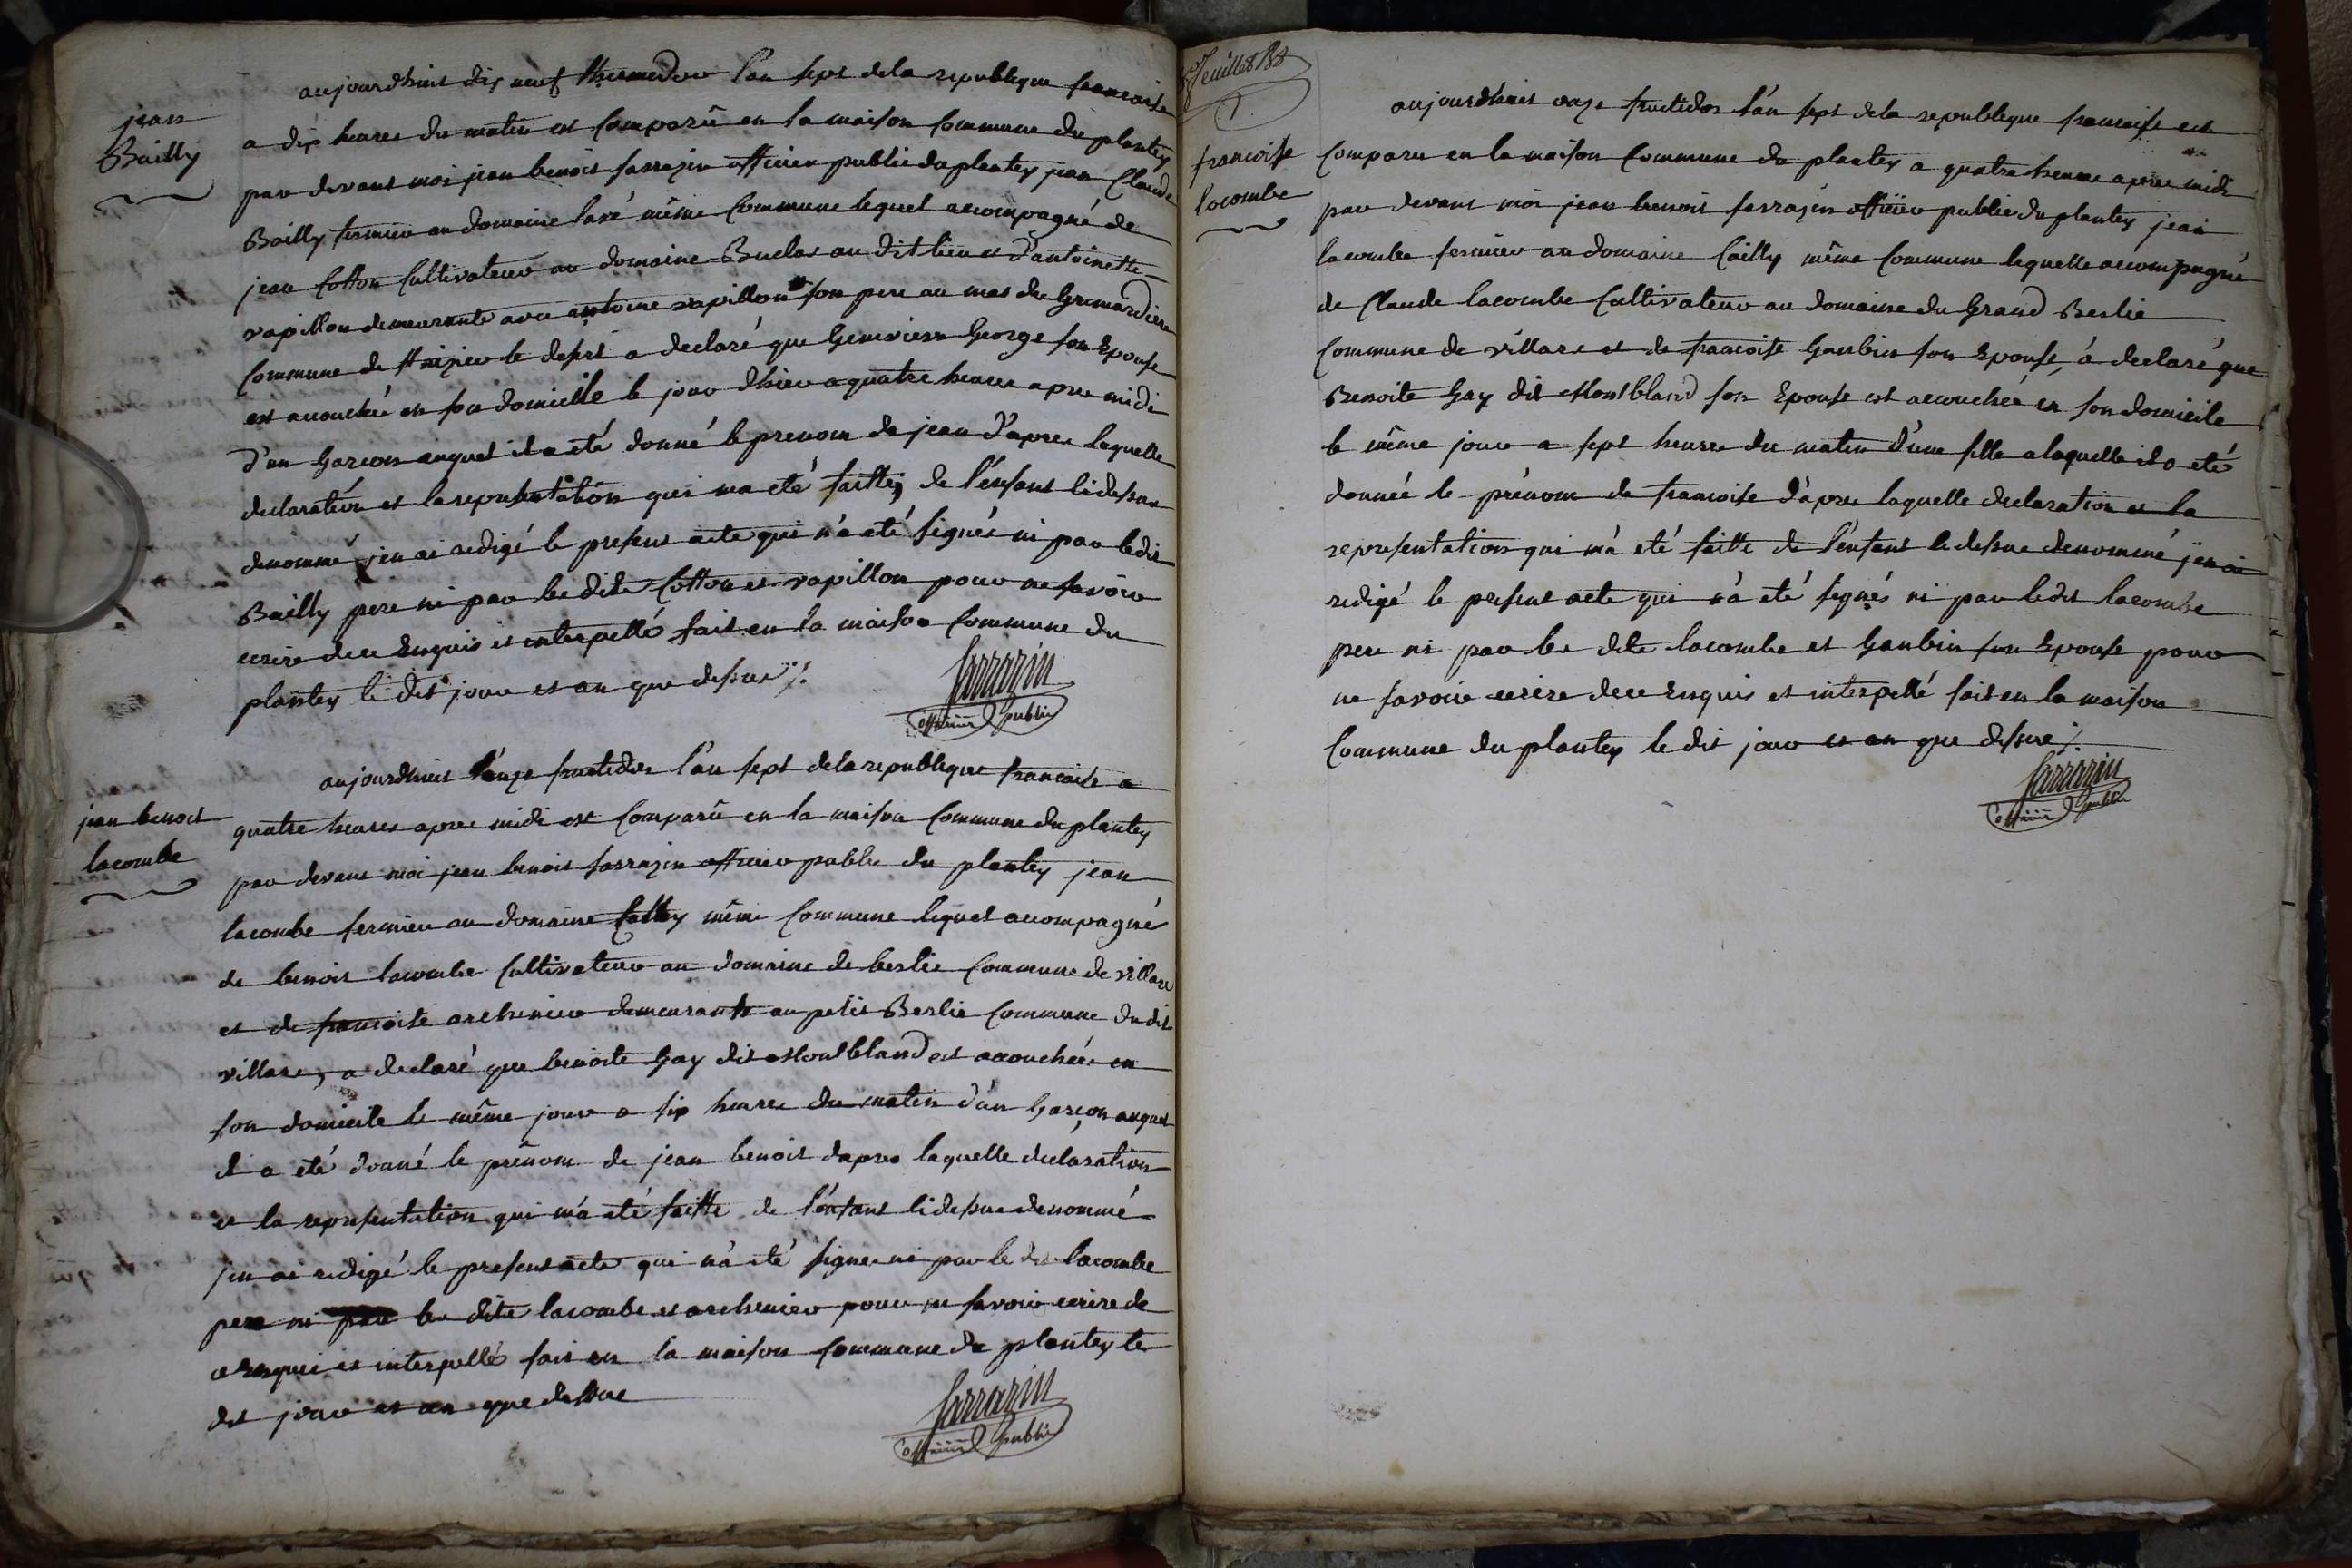 jean
Bailly
aujourdhuis dix neuf thermidor l'an sept dela republique francoise
a dix heures du matin est Comparû en la maison Commune du plantey
par devant moi jean benoit sarrazin officier public du plantey jean Claude
Bailly fermier au domaine laré même Commune lequel accompagné de
jean Cotton Cultivateur au domaine Buclas au dit lieu et d'antoinette
rapillon demeurante avec antoine rapillon son pere au mas du Grimardiere
Commune de St nizier le desert a declaré que Genevieve George son Epouse
est accouchée en son domicille le jour dhier a quatre heures apres midi
d'un Garcon auquel il a eté donné le prenom de jean d'apres laquelle
declaration et la representation qui ma eté faitte, de l'enfant cidessus
denommé jen ai redigé le present acte qui n'a eté signés ni par ledit
Bailly pere ni par les dits Cotton et rapillon pour ne savoir
ecrire dece Enquis et interpellé fait en la maison Commune du
plantey le dit jour et an que dessus ./.
Sarrazin
officier public
jean benoit
lacombe
aujourdhuis l'onze fructidor l'an sept dela republique francaise a
quatre heures apres midi est Comparû en la maison Commune du plantey
par devant moi jean benoit sarrazin officier public du plantey jean
lacombe fermier au domaine Cailly même Commune lequel accompagné
de benoit lacombe Cultivateur au domaine de berlie Commune de villars
et de francoise archenier demeurante au petit Berlie Commune dudit
villars, a declaré que benoite Gay dit Montbland est accouchée en
son domicile le même jour a six heures du matin d'un Garçon auquel
il a eté donné le prenom de jean benoit dapres laquelle declaration
et la representation qui m'a eté faitte de l'enfant cidessus denommé
jen ai redigé le present acte qui n'a eté signer ni par le dit lacombe
pere ni par les dits lacombe et archenier pour ne savoir ecrire de
ce Enquis et interpellé fait en la maison Commune du plantey le
dit jour et an que dessus
Sarrazin
officier public
feuillet
francoise
lacombe
aujourdhuis onze fructidor l'an sept dela republique francaise est
Comparu en la maison Commune du plantey a quatre heures apres midi
par devant moi jean benoit sarrazin officier public du plantey jean
lacombe fermier au domaine Cailly même Commune lequelle accompagné
de Claude lacombe Cultivateur au domaine du Grand Berlie
Commune de villars et de francoise Gaubin son Epouse, a declaré que
Benoite Gay dit Montbland son Epouse est accouchée en son domicile
le même jour a sept heures du matin d'une fille a laquelle il a eté
donnée le prénom de francoise d'apres laquelle declaration et la
representation qui m'a eté faitte de l'enfant cidessus denommé jen ai
redigé le present acte qui n'a eté signés ni par ledit lacombe
pere ni par les dits lacombe et Gaubin son Epouse pour
ne savoir ecrire dece Enquis et interpellé fait en la maison
Commune du plantey le dit jour et an que dessus ./.
Sarrazin
officier public